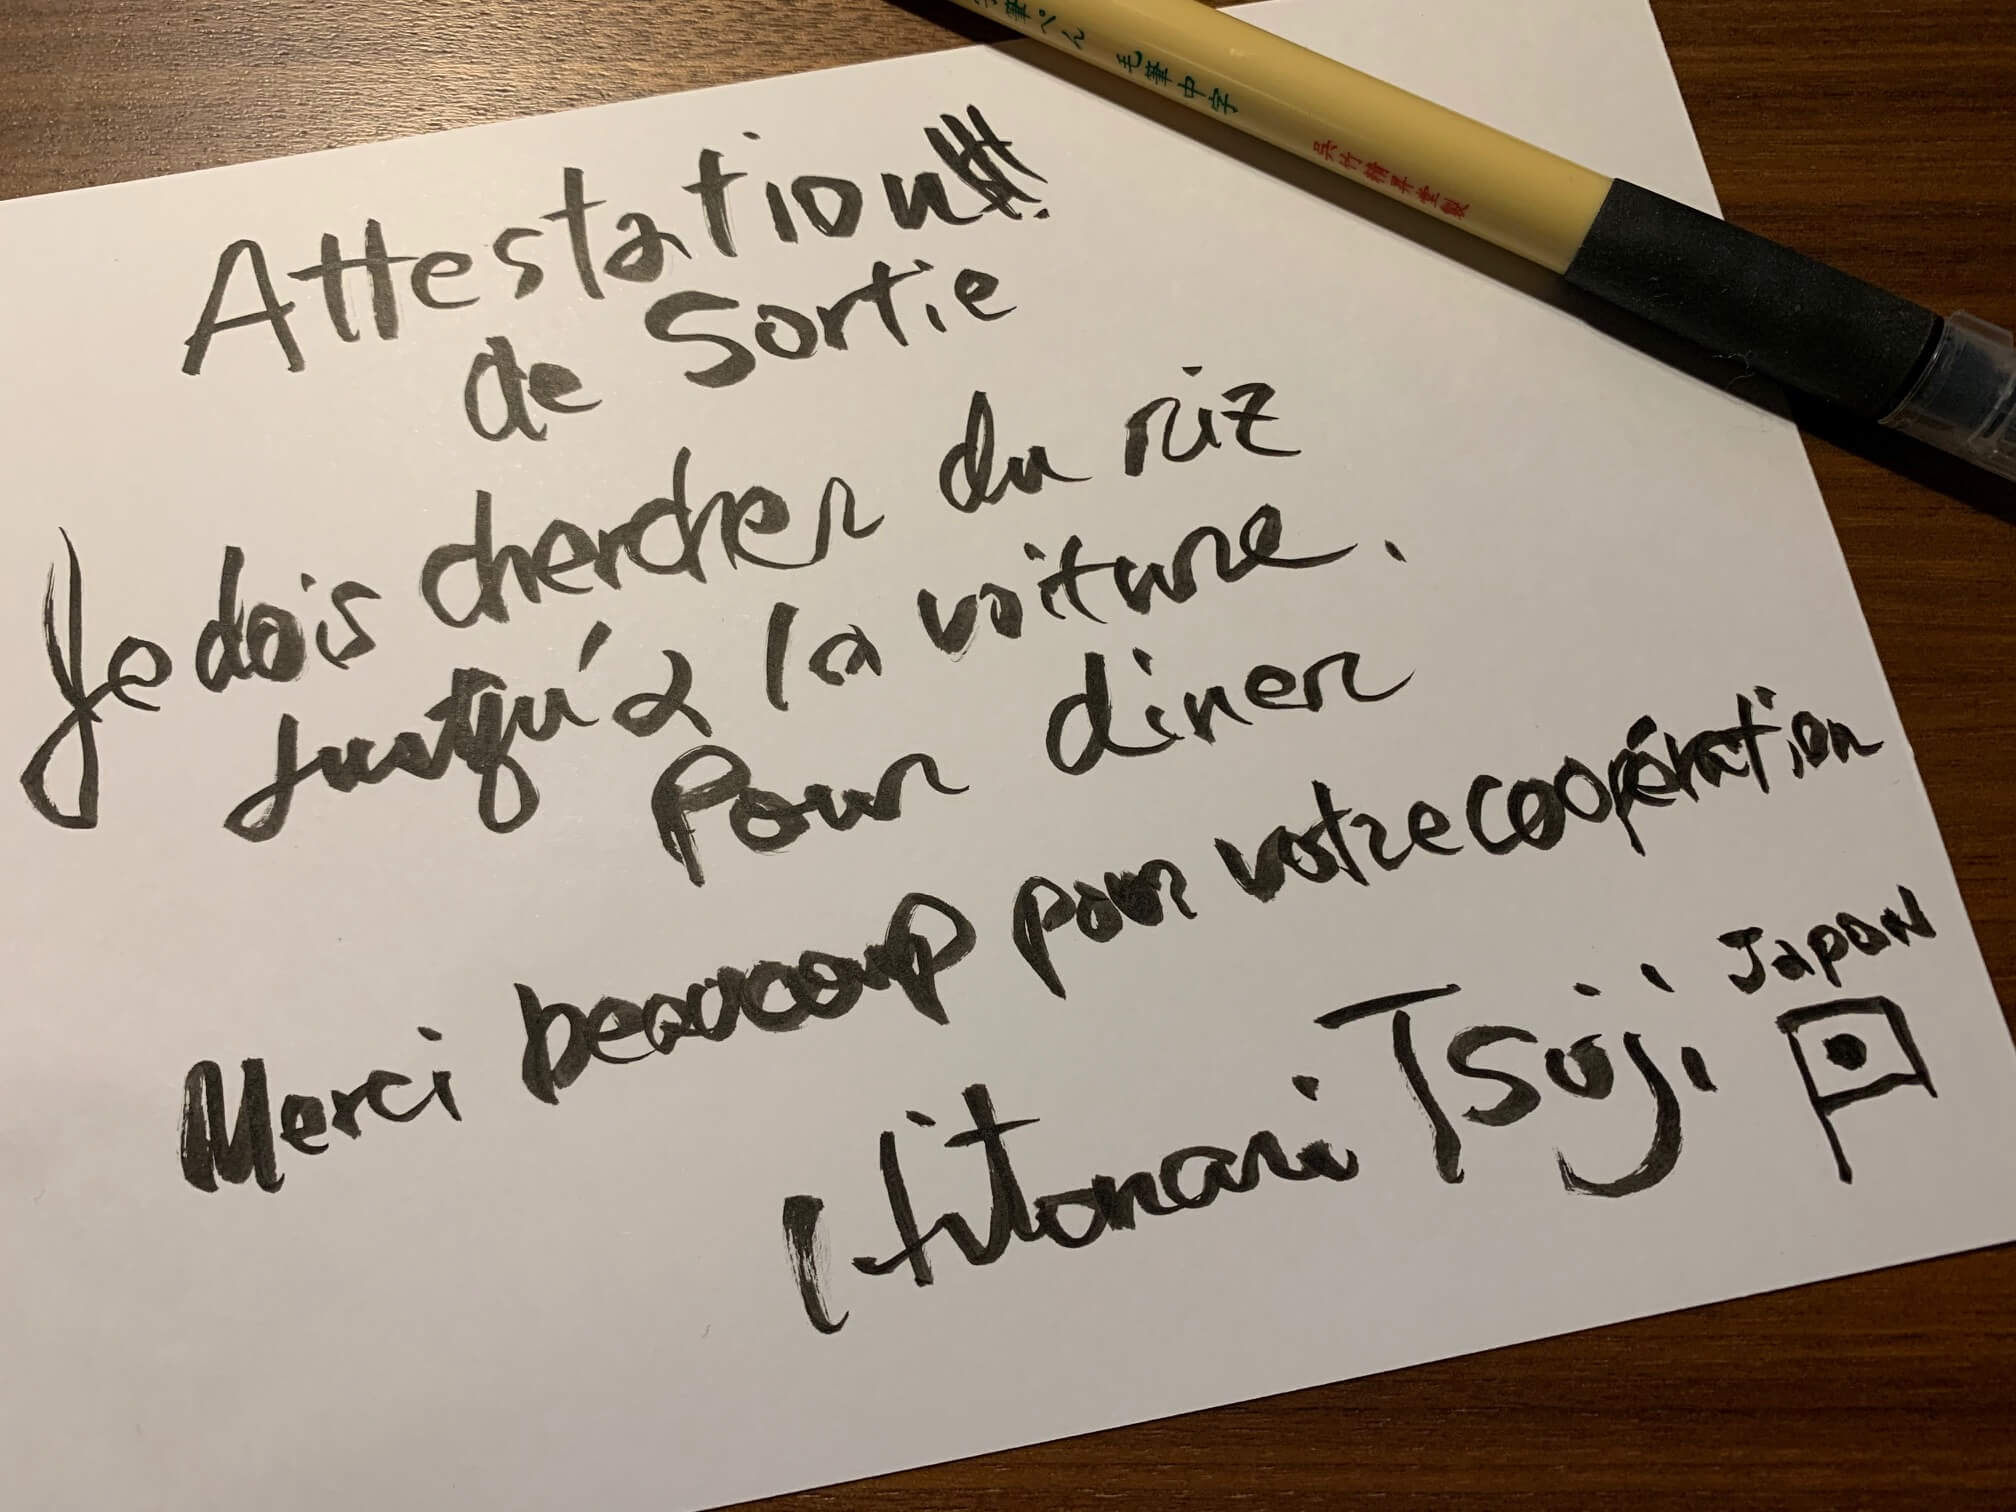 筆ぺん 毛筆中字
呉竹精昇堂製
Attestation!!!
de Sortie
Je dois chercher du riz
jusqu'à la voiture.
Pour diner
Merci beaucoup pour votre coopération
Japon
Hitonari Tsuji